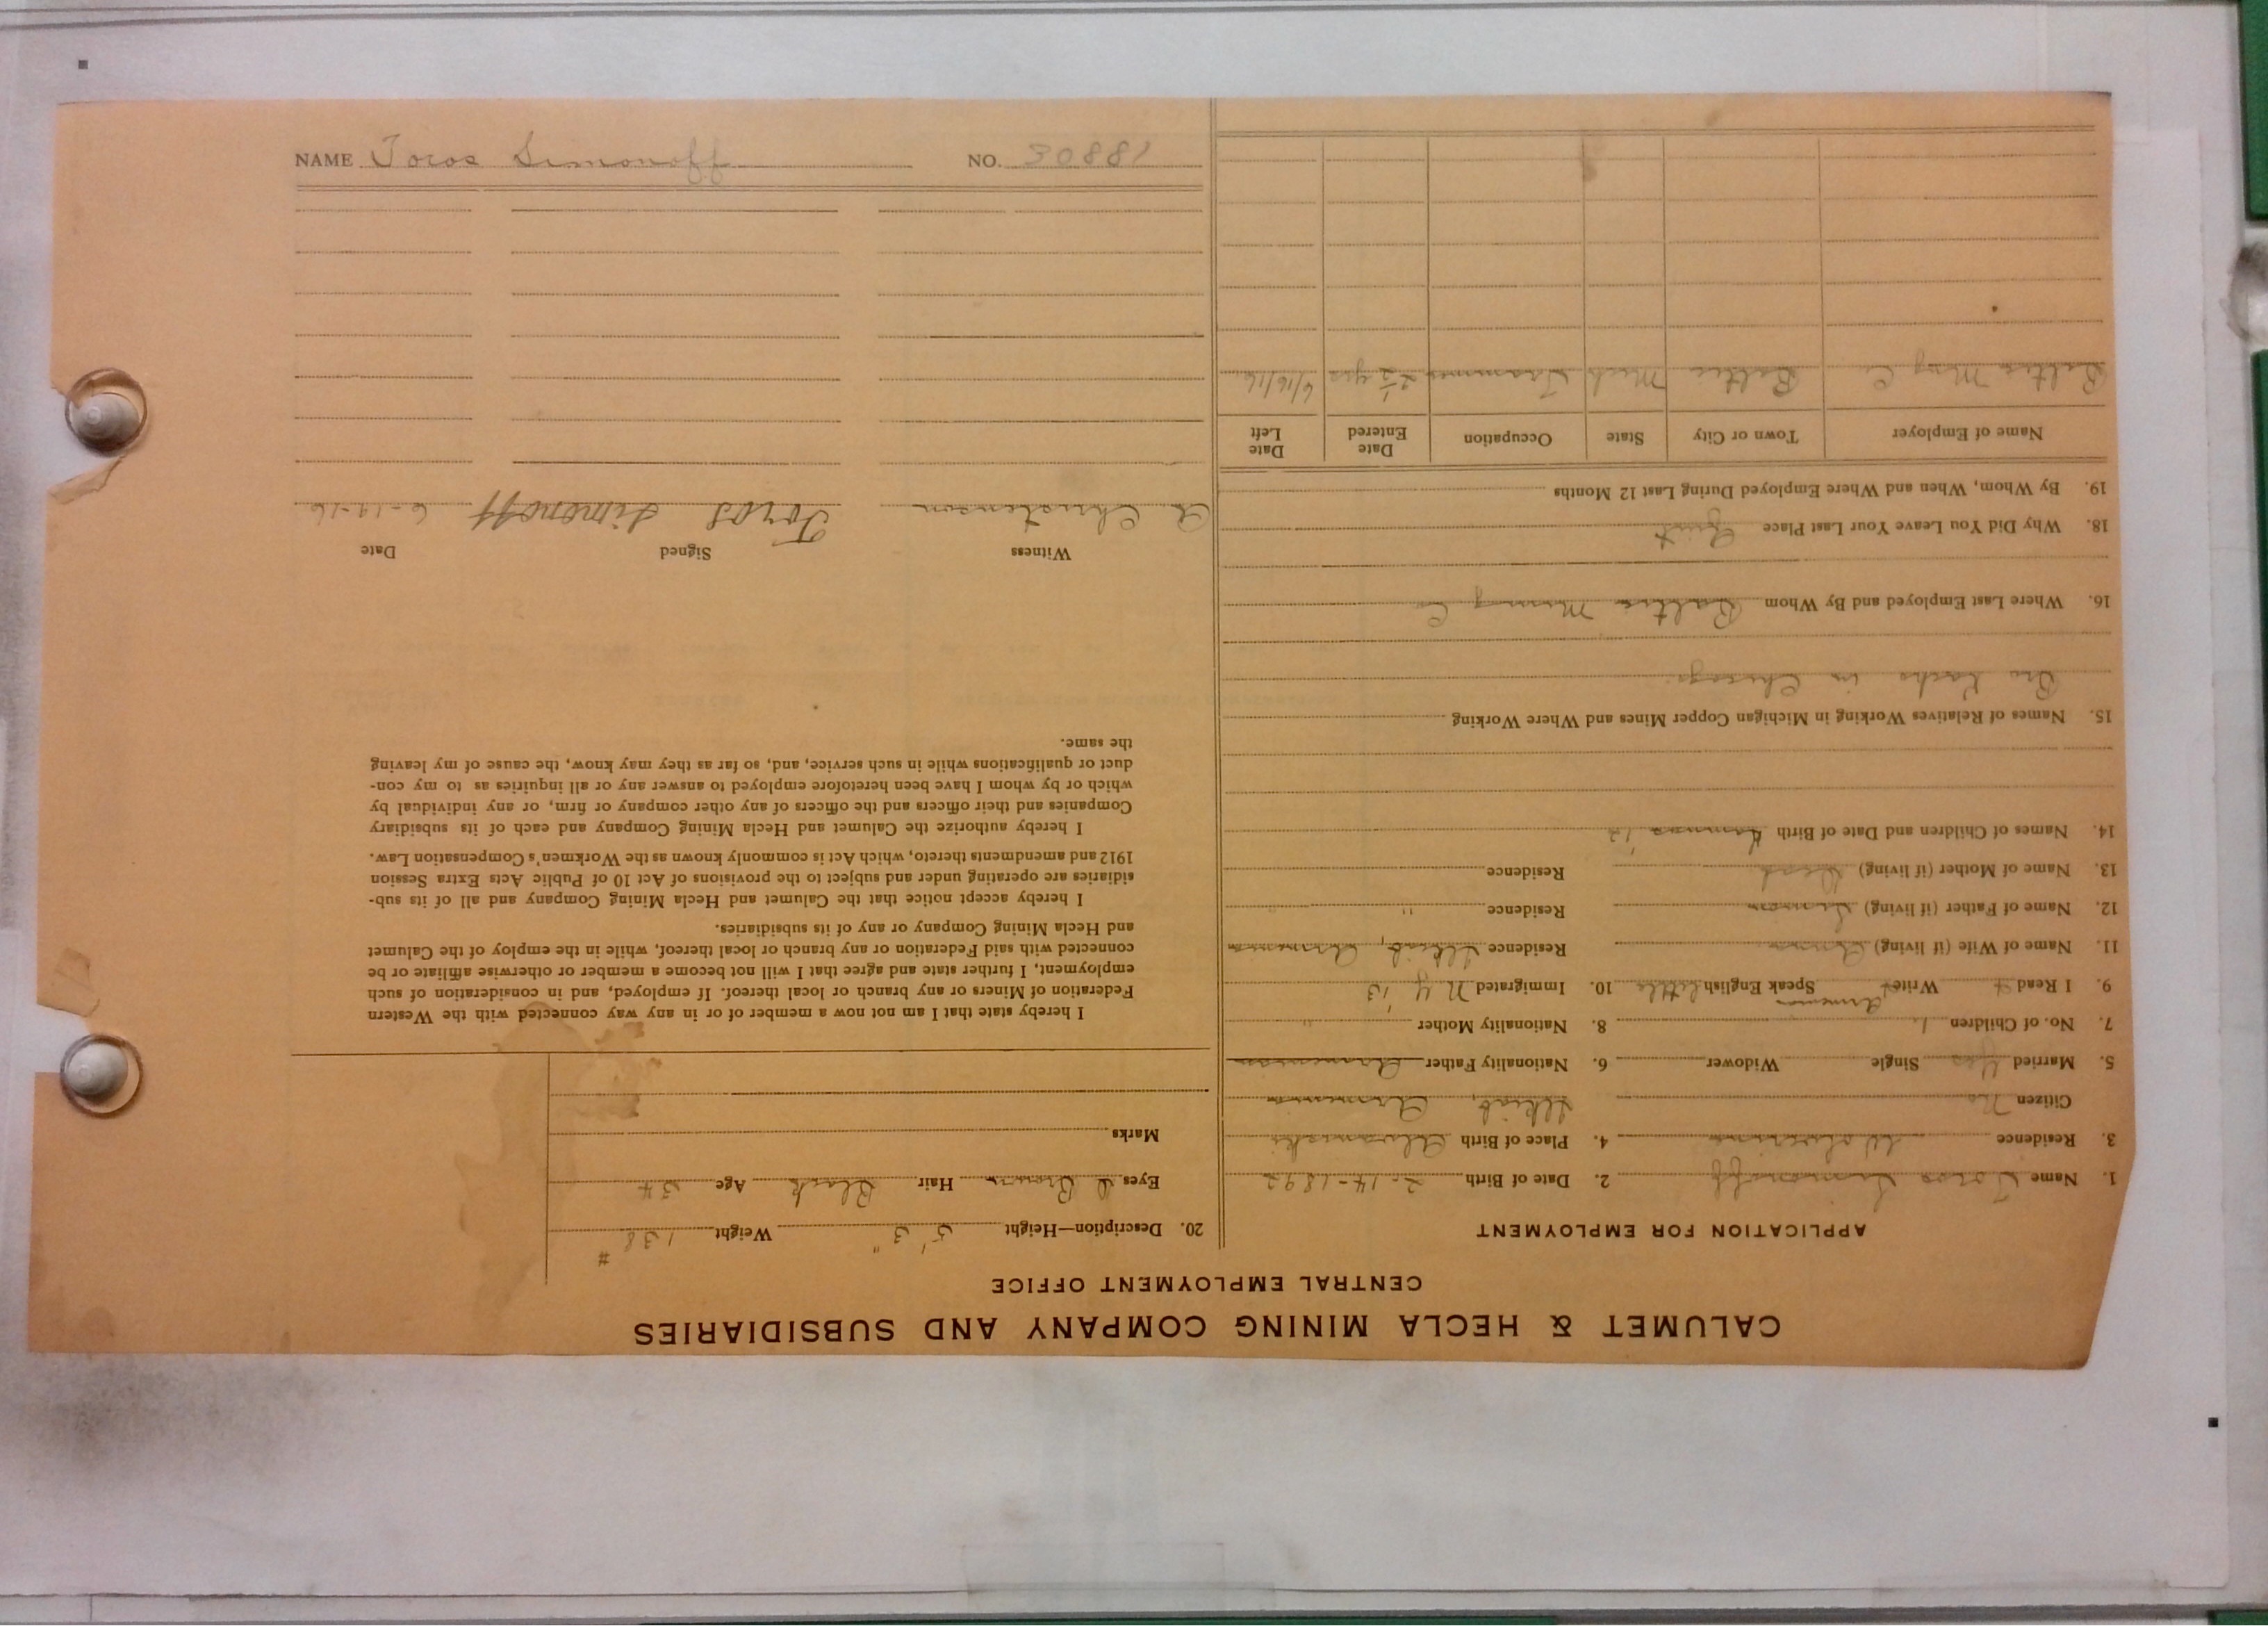 NAME Toros Simonoff NO. 30881
CALUMET & HECLA MINING COMPANY AND SUBSIDIARIES
CENTRAL EMPLOYMENT OFFICE
APPLICATION FOR EMPLOYMENT
1. Name Toros Simonoff 2. Date of Birth 2-14-1892
3. Residence Wolverine 4. Place of Birth
Citizen No
5. Married Yes Single Widower 6. Nationality Father Armenian
7. No. of Children 1 8. Nationality Mother "
Armenian
9. I Read Write Speak English little 10. Immigrated N Y '13
11. Name of Wife (if living) Residence
12. Name of Father (if living) Residence " "
13. Name of Mother (if living) Dead Residence
14. Names of Children and Date of Birth
15. Names of Relatives Working in Michigan Copper Mines and Where Working
in Chicago
16. Where Last Employed and By Whom Baltic Mining Co
18. Why Did You Leave Your Last Place Quit
19. By Whom, When and Where Employed During Last 12 Months
Name of Employer Town or City State Occupation Date Entered Date Left
Baltic Mng Co Baltic Mich Trammer 2½ yrs 6/16/16
20. Description—Height 5' 3" Weight 138 #
Eyes D Brown Hair Black Age 24
Marks
I hereby state that I am not now a member of or in any way connected with the Western
Federation of Miners or any branch or local thereof. If employed, and in consideration of such
employment, I further state and agree that I will not become a member or otherwise affiliate or be
connected with said Federation or any branch or local thereof, while in the employ of the Calumet
and Hecla Mining Company or any of its subsidiaries.
I hereby accept notice that the Calumet and Hecla Mining Company and all of its sub-
sidiaries are operating under and subject to the provisions of Act 10 of Public Acts Extra Session
1912 and amendments thereto, which Act is commonly known as the Workmen's Compensation Law.
I hereby authorize the Calumet and Hecla Mining Company and each of its subsidiary
Companies and their officers and the officers of any other company or firm, or any individual by
which or by whom I have been heretofore employed to answer any or all inquiries as to my con-
duct or qualifications while in such service, and, so far as they may know, the cause of my leaving
the same.
Witness Signed Date
Christenson Toros Simonoff 6-19-16